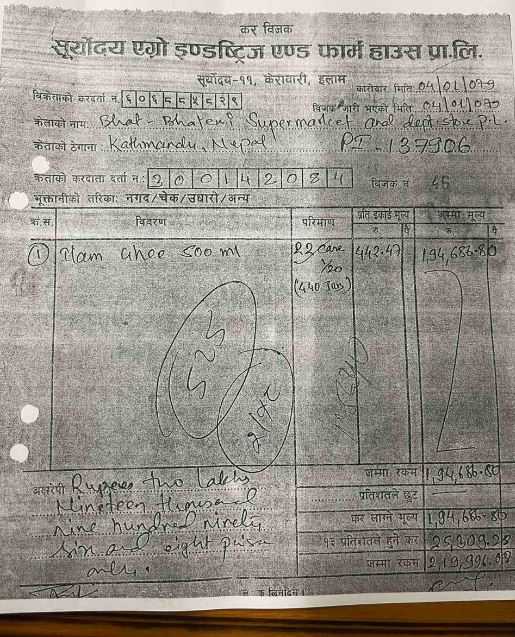 कर विजक
सूर्योदय एग्रो इण्डष्ट्रिज एण्ड फार्म हाउस प्रा.लि.
सूर्योदय-११, केरावारी, इलाम
कारोवार मिति 04/01/079
विक्रेताको करदर्ता नं.
विजक जारी भएको मिति 04/01/079
क्रेताको नाम: Bhat-Bhateni Supermarket and dept. store P.L.
क्रेताको ठेगाना: Kathmandu, Nepal PI-137906
क्रेताको करदाता दर्ता नं: विजक नं 46
भुक्तानीको तरिका: नगद/चेक/उधारो/अन्य
क्र.सं. विवरण परिमाण प्रति इकाई मूल्य जम्मा मूल्य
रु. पै रु. पै
① Ilam Ghee 500 ml 22 Cane 442.47 1,94,686.80
1/20
(440 Jars)
525
जम्मा रकम 1,94,686.80
अक्षरेपी Rupees two lakhs
प्रतिशतले छुट
Nineteen thousand
कर लाग्ने मूल्य 1,94,686.80
nine hundred ninety
१३ प्रतिशतले हुने कर 25,309.28
six and eight paisa
जम्मा रकम 2,19,996.08
only.